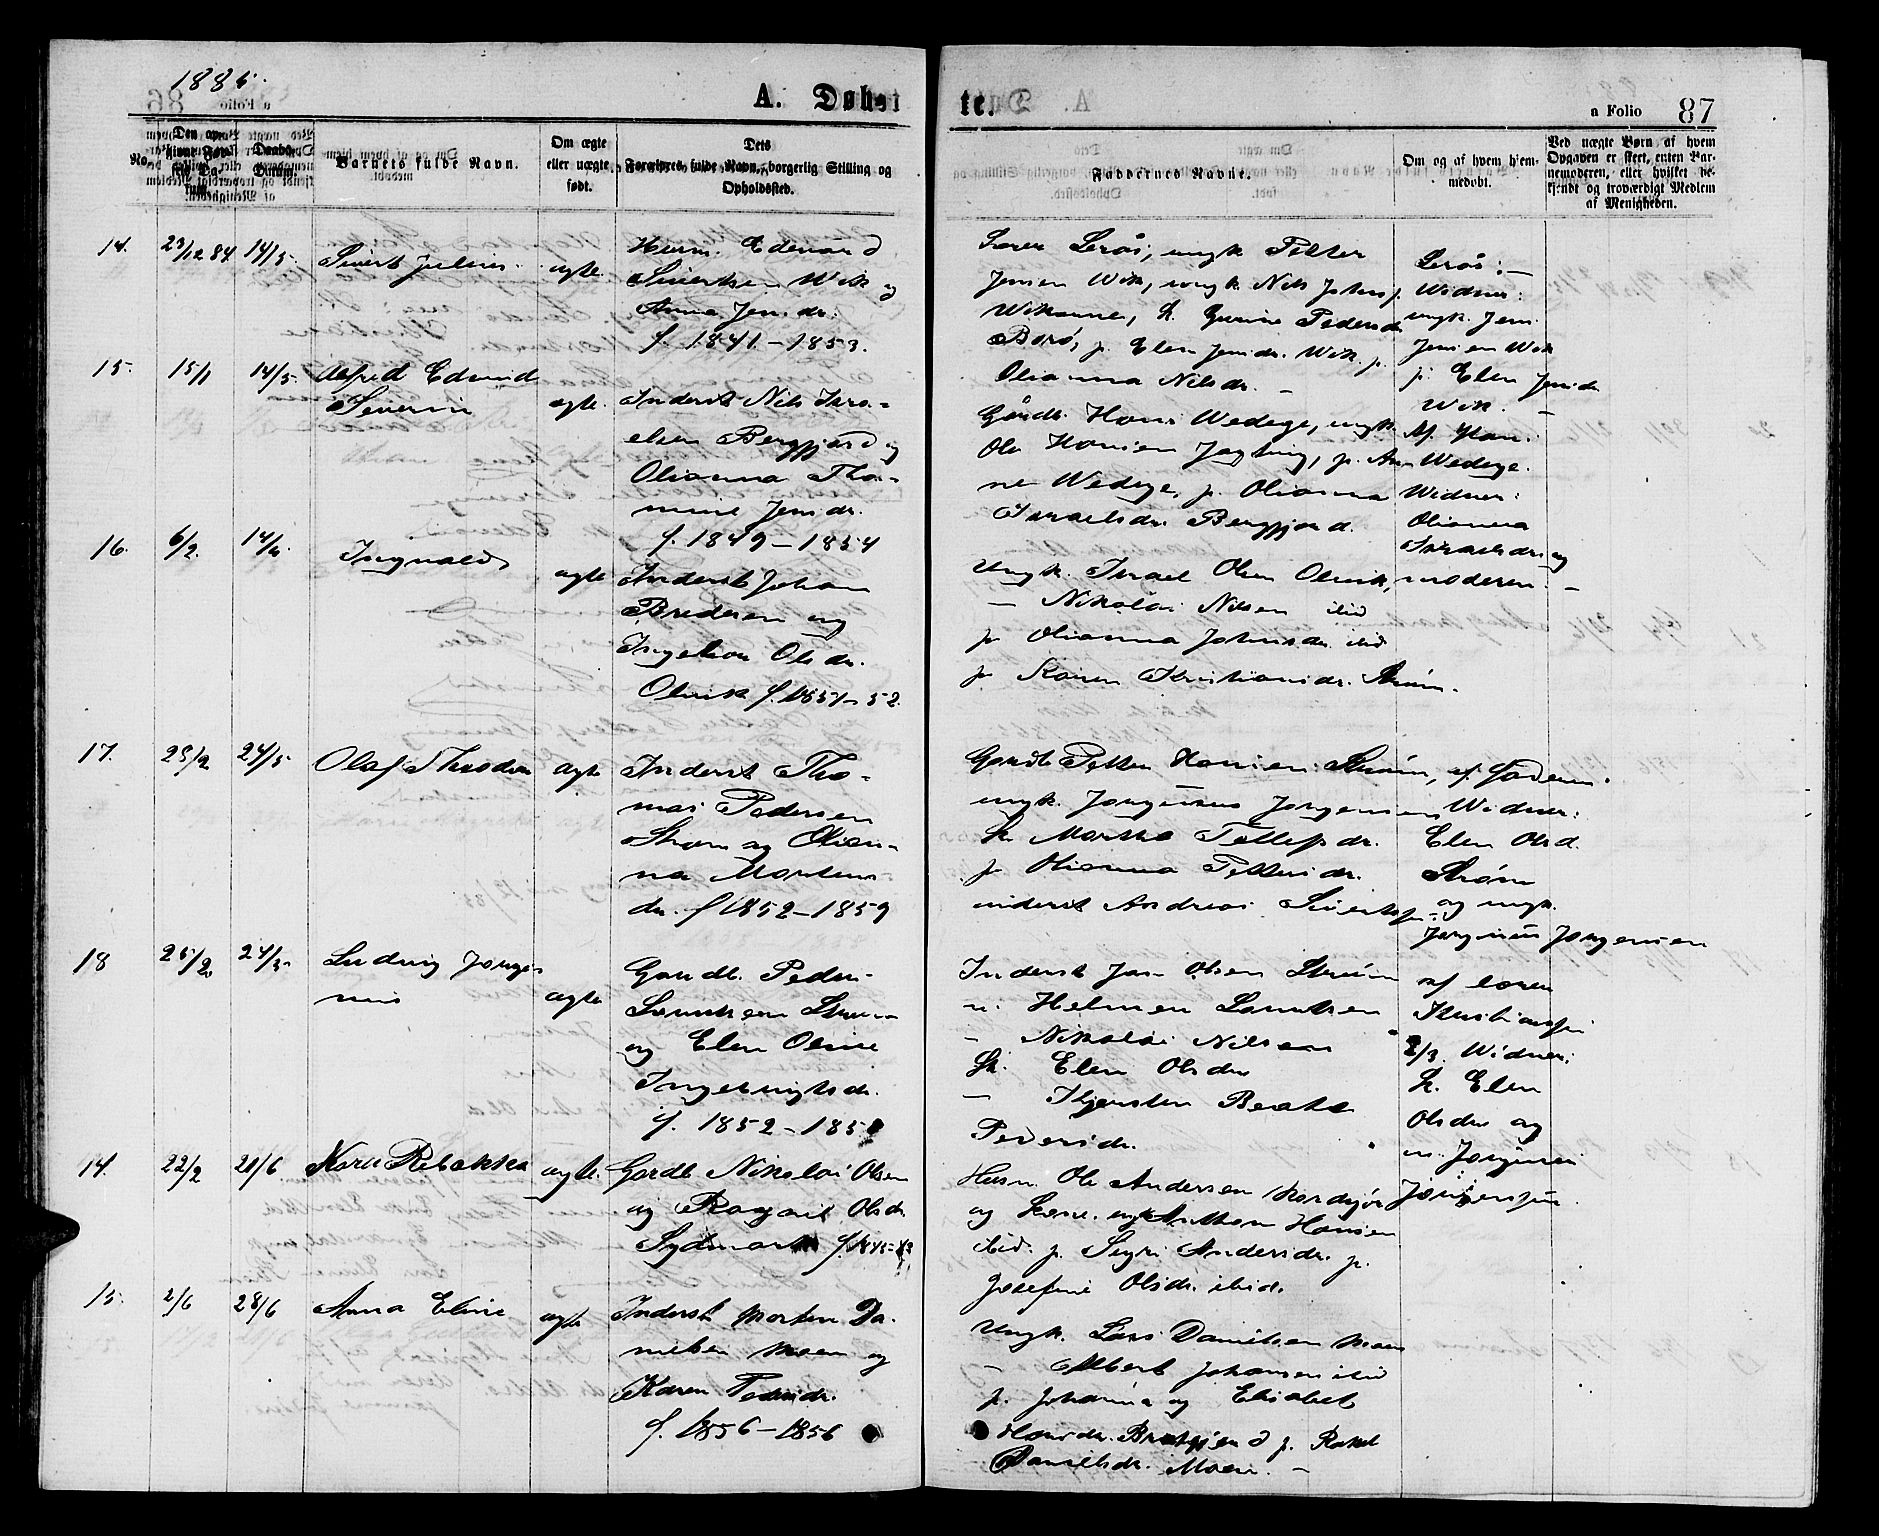 1885.
A. Døbte.
n Folio 87
No.
Barnets fulde Navn.
Om ægte
eller uægte
født.
Dets
Forældres fulde Navn, borgerlig Stilling og
Opholdssted.
Faddernes Navne.
Om og af hvem hjem-
medøbt.
Ved uægte Børn af hvem
Opgaven er skeet, enten Bar-
nemoderen, eller hvilket be-
kjendt og troværdigt Medlem
af Menigheden.
14. 23/12 84 14/5. Sivert Julius. ægte.
Husm. Edevard
Sivertsen Wik og
Anna Jensdr.
f. 1841 - 1853.
Lærer Lerøs, ungk. Petter
Jensen Wik, ungk. Nils Johns.
Wikanne, K. Gurine Pedersdr
Borø, p. Elen Jensdr. Wik, p.
Olianna Nilsdr. -
Lerøs: -
Widner:
ungk. Jens
Jensen Wik
p. Elen Jensdr
Wik. -
15. 15/1 14/5. Alfred Edvind
Severin ægte.
Inderst Nils Isra-
elsen Bergfjord og
Olianna Tho-
mine Jensdr.
f. 1849 - 1854
Gaardb. Hans Wedege, ungk.
Ole Hansen Jegting, p. An-
ne Wedege, p. Olianna
Israelsdr. Bergfjord.
Af Hans
Wedege.
Widner:
Olianna
Israelsdr og
moderen. -
16. 6/2. 14/6. Ingvald ægte
Inderst Johan
Bredesen og
Ingeborg Olsdr.
Olvik f. 1851 - 52.
Ungk. Israel Olsen Olvik,
- Nikolai Nilsen ibid
p. Olianna Johnsdr. ibid
p. Karen Kristiansdr. Strøm.
17. 25/2 24/5 Olaf Theodor ægte
Inderst Tho-
mas Pedersen
Strøm og Olian-
na Mortens-
dr. f 1852 - 1859
Gaardb Petter Hansen Strøm,
ungk. Jørginus Jørgensen
K. Martha Tollefsdr.
p. Olianna Pettersdr.
inderst Andreas Sivertsen
af Faderen.
Widner:
Elen Olsd.
Strøm
og ungk.
Jørginus Jørgensen
18 25/2. 24/5. Ludvig Jørgi-
nus ægte
Gaardb. Peder
Lorntsen Strøm
og Elen Oline
Ingebrigtsdr.
f. 1852 -
Inderst Jan Olsen Strøm
u. Helmer Lorntsen
- Nikolai Nilsen
K. Elen Olsdr
- Kjersten Beate
Pedersdr.
af Lærer
Kristiansen
2/3. Widner:
K. Elen
Olsdr og
u. Jørginus
Jørgensen.
14. 22/2 21/6 Karen Rebekka ægte.
Gardb Nikolai Olsen
og Ragnil Olsdr.
Sydmark
Husm. Ole Andersen Nordmør
og Kone. ungk Anthon Hansen
ibid. p. Segri Andersdr. p.
Josefine Olsdr. ibid.
15. 2/6 28/6 Anna Eline ægte
Inderst Morten Da-
nielsen Moen og
Karen Pedersdr.
f. 1856 - 1856
Ungk. Lars Danielsen Moen
- Albert Johansen ibid
p. Johanna og Elisabet
Hansdr. p. Rakel
Danielsdr. Moen. -